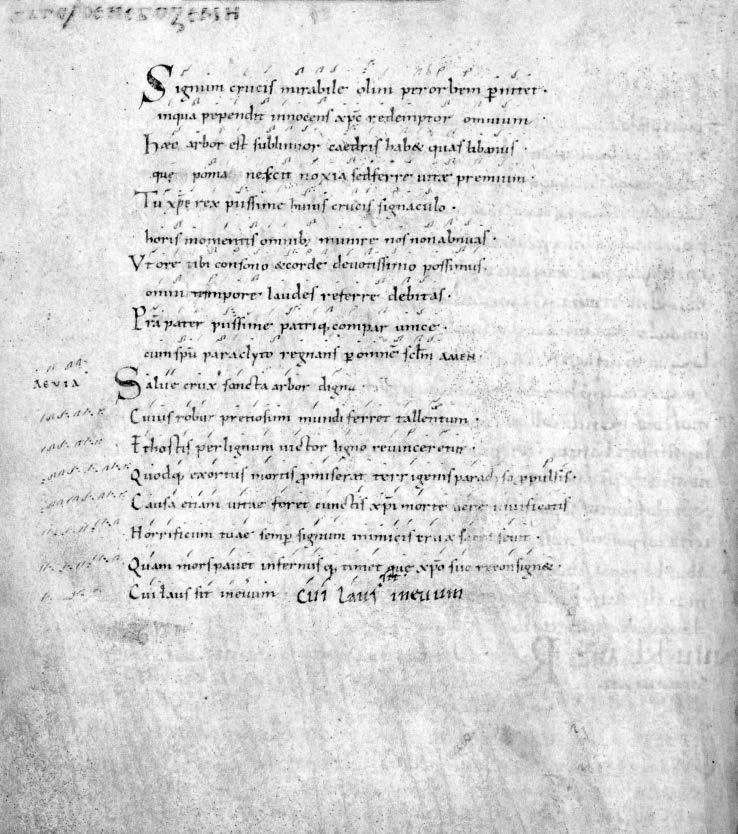 Signum crucis mirabile olim per orbem p̄nitet·
inqua pependit innocens xp̄c redemptor omnium
Haec arbor est sublimior caedris hab& quas libanus·
quę poma nescit noxia sed ferre uitae premium·
Tu xp̄e rex piissime huius crucis signaculo·
horis momentis omnib; munire nos non abnuas·
Vt ore tibi consono & corde deuotissimo possimus·
omni tempore laudes referre debitas·
P̄ra pater piissime patriq; compar unice·
cum sp̄u paraclyto regnans p omne sclm AMEN·
AEVIA
Salue crux sancta arbor digna·
Cuius robur pretiosum mundi ferret tallentum·
Et hostis per lignum uictor ligno reuinceretur·
Quodq; exortus mortis p̄miserat terrigenis paradyso ppulsis·
Causa etiam uitae foret cunctis xp̄i morte uere uiuificatis
Horrificum tuae semp signum inimicis crux
Quam mors pauet infernus q; timet quę xp̄o suo reconsign&·
Cui laus sit ineuum cui laus ineuum